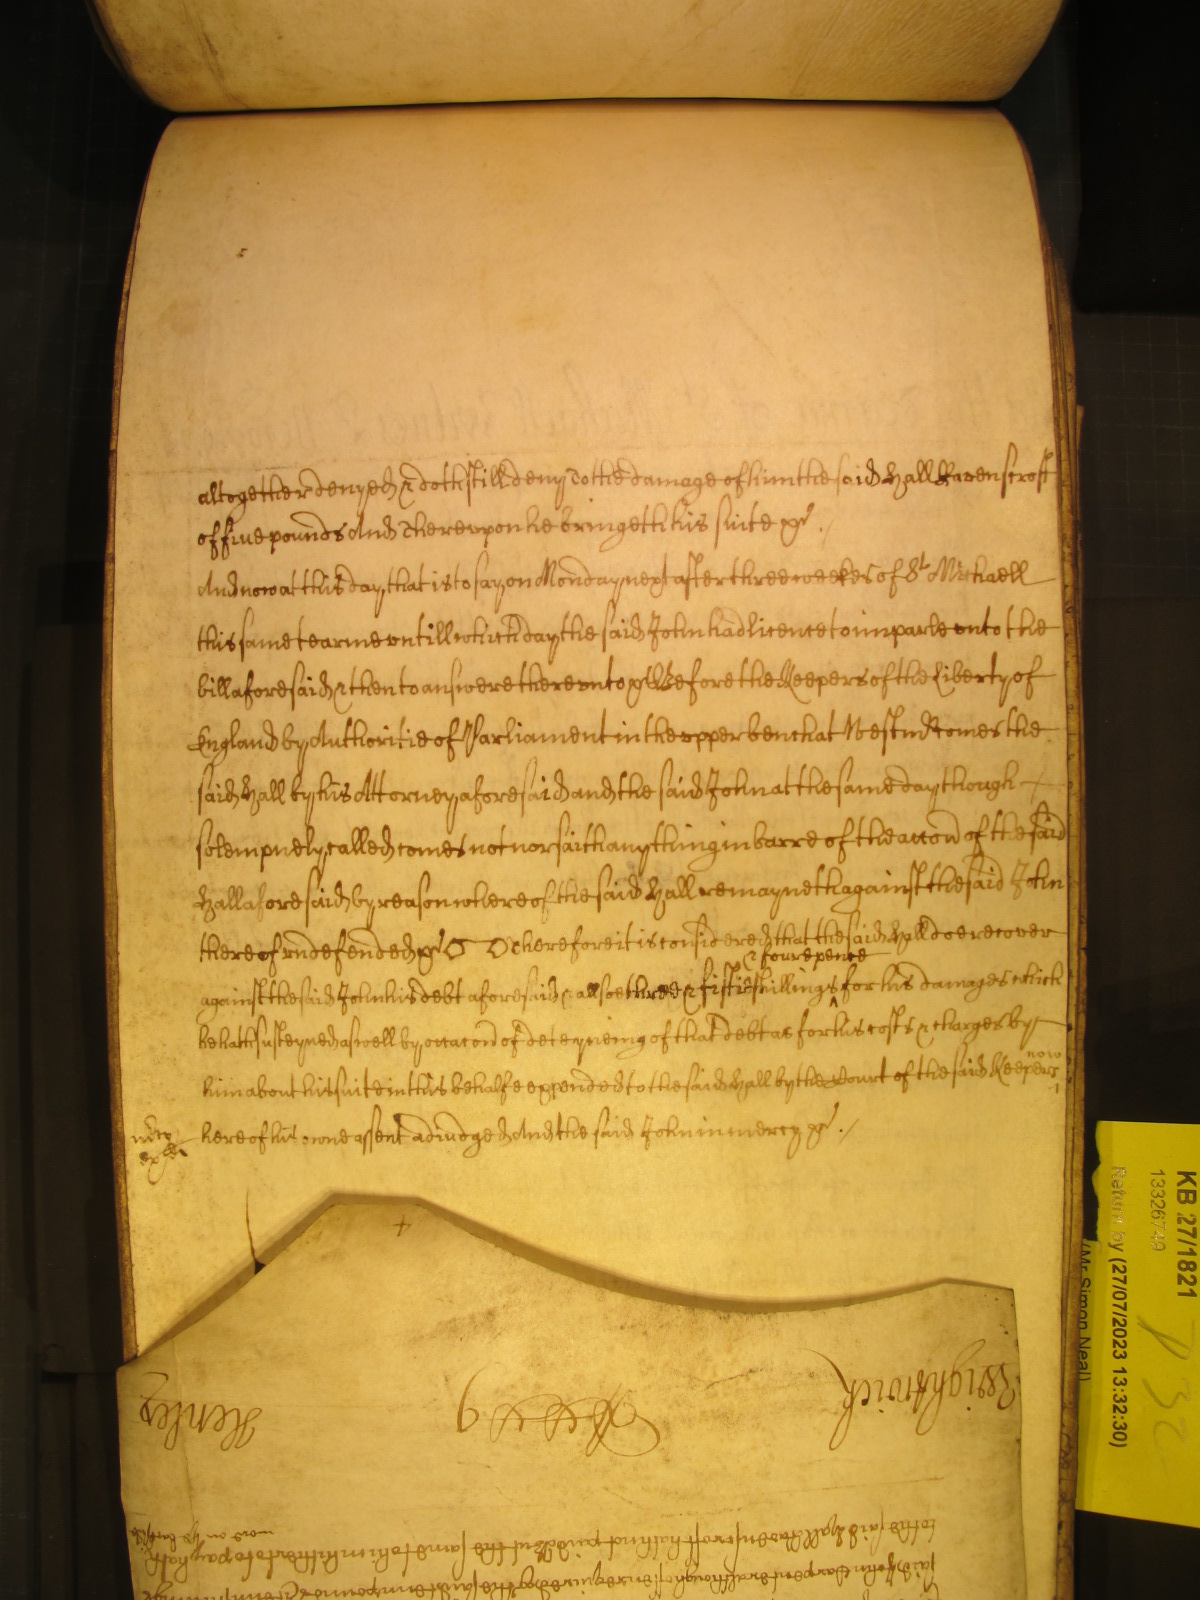 altogether denyed & doth still deny To the damage of him the said Hall Ravenscroft
of five pounds And thereupon he bringeth his suite &c ./
And now at this day that is to say on Monday next after three weekes of St Michaell
this same tearme untill which day the said John had licence to imparle unto the
bill aforesaid & then to answere thereunto &c Before the Keepers of the Liberty of
England by Authoritie of Parliament in the upper bench at Westmr Comes the
said Hall by his Attorney aforesaid and the said John at the same day though
solempnely called comes not nor saith any thing in barre of the accon of the said
Hall aforesaid by reason whereof the said Hall remayneth against the said John
thereof undefended &c Therefore it is considered that the said Hall doe recover
& foure pence
against the said John his debt aforesaid & allsoe three & fiftie shillings for his damages which
he hath susteyned aswell by occacon of deteyneing of that debt as for his costs & charges by
now
him about his suite in this behalfe expended to the said Hall by the Court of the said Keepers
here of his owne assent adiudged And the said John in mercy &c ./
Wightwick
Henley
more on the backside
to the said Hall Ravenscroft hath not paid but the same to him hitherto to pay hath
said John Carpenter although often required
KB 27/1821
13326749
Return by (27/07/2023 13:32:30)
(Mr Simon Neal)